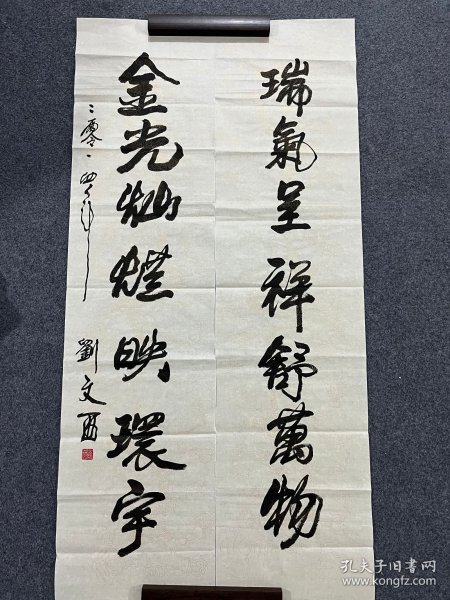 瑞氣呈祥舒萬物
金光灿烂映環宇
二零一四年
劉文西
孔夫子旧书网
www.kongfz.com